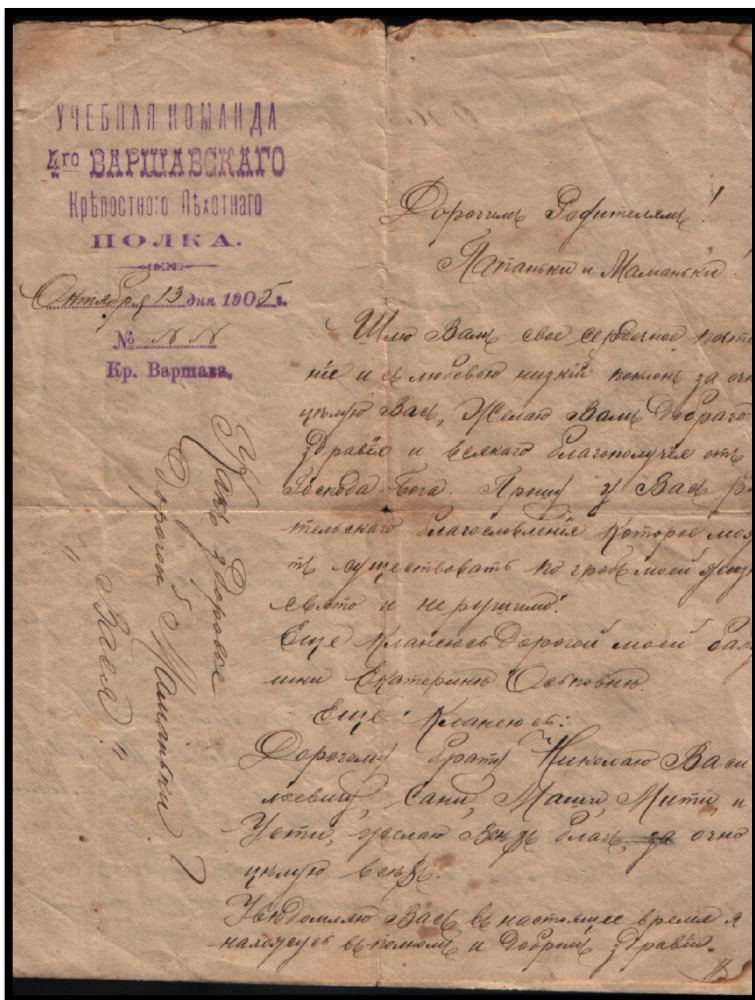 УЧЕБНАЯ КОМАНДА
4го ВАРШАВСКАГО
Крѣпостного Пѣхотнаго
ПОЛКА.
Октября 13 дня 1905 г.
№ N N
Кр. Варшава.
Дорогимъ Родителямъ!
Папаньки и Маманьки!
Шлю Вамъ свое сердечное почте
ніе и съ любовью низкій поклонъ за очно
цѣлую Васъ, Желаю Вамъ добраго
здравія и всякаго благополучія отъ
Господа Бога. Прошу у Васъ ро
тельскаго благословленія которое мож
тъ существовать по гробъ моей
свято и не рушимо!
Еще Кланеюсь Дорогой моей баб
шки Екатерины Осиповны
Еще Кланеюсь:
Дорогому брату Николаю Васи
льевичу, Сани, Маши, Мити, и
Усти, благъ, за очно
цѣлую всѣхъ.
Увѣдомляю Васъ въ настоящее время я
нахожусь въ полномъ и добромъ здравіи.
Какъ здоровье
Дорогой Маманьки?
"Вася"